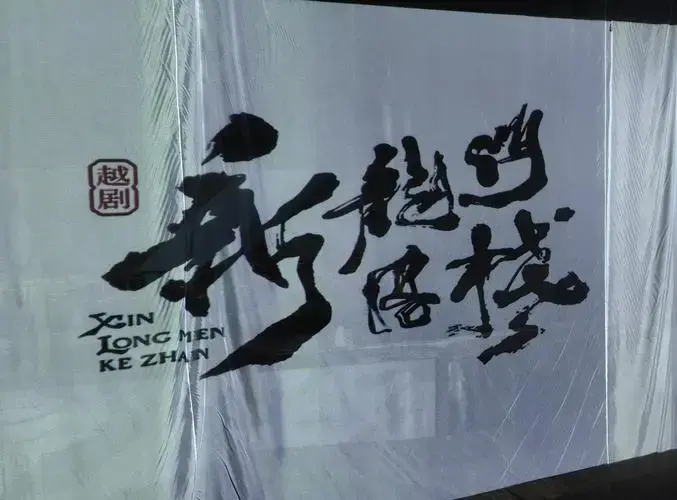 越剧
新龍門客棧
XIN
LONG MEN
KE ZHAN